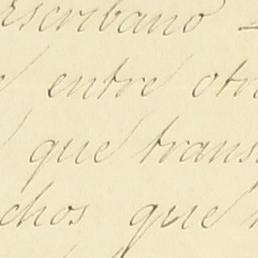 Escribano
entre otr
que trans
chos que